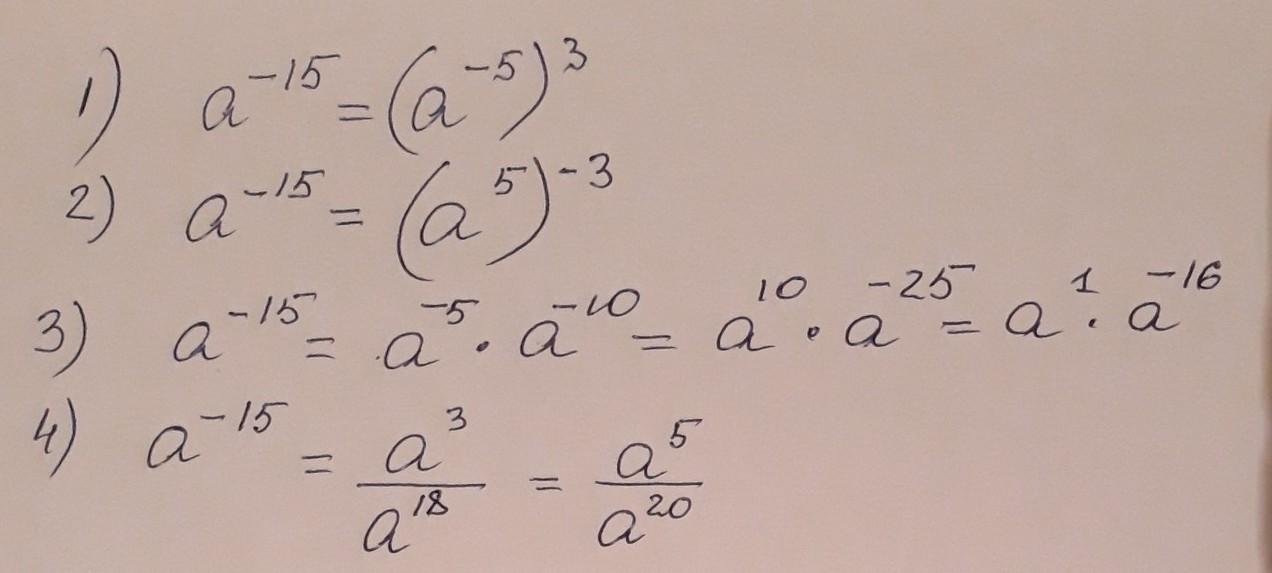 1) a⁻¹⁵ = (a⁻⁵)³
2) a⁻¹⁵ = (a⁵)⁻³
3) a⁻¹⁵ = a⁻⁵ · a⁻¹⁰ = a¹⁰ · a⁻²⁵ = a¹ · a⁻¹⁶
4) a⁻¹⁵ = a³/a¹⁸ = a⁵/a²⁰